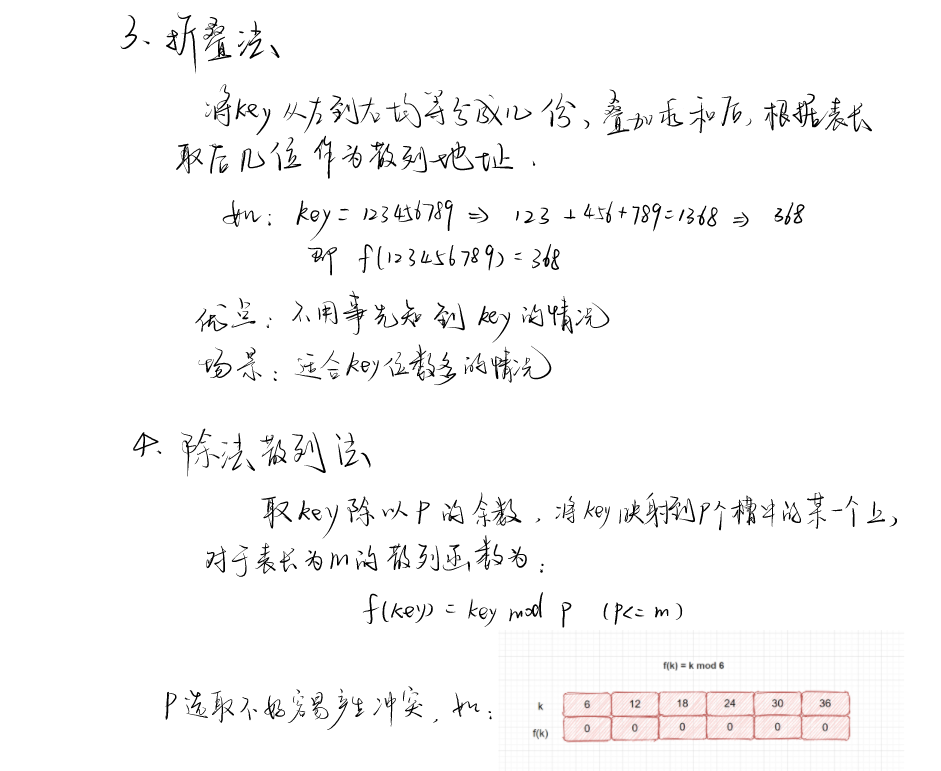 3、折叠法
将key从左到右均等分成几份、叠加求和后,根据表长
取后几位作为散列地址.
如: key = 123456789 ⇒ 123 + 456 + 789 = 1368 ⇒ 368
即 f(123456789) = 368
优点: 不用事先知到key的情况
场景: 适合key位数多的情况
4、除法散列法
取key除以P的余数,将key映射到P个槽中的某一个上,
对于表长为m的散列函数为:
f(key) = key mod p (p<=m)
f(k) = k mod 6
P选取不好容易产生冲突,如:
k 6 12 18 24 30 36
f(k) 0 0 0 0 0 0